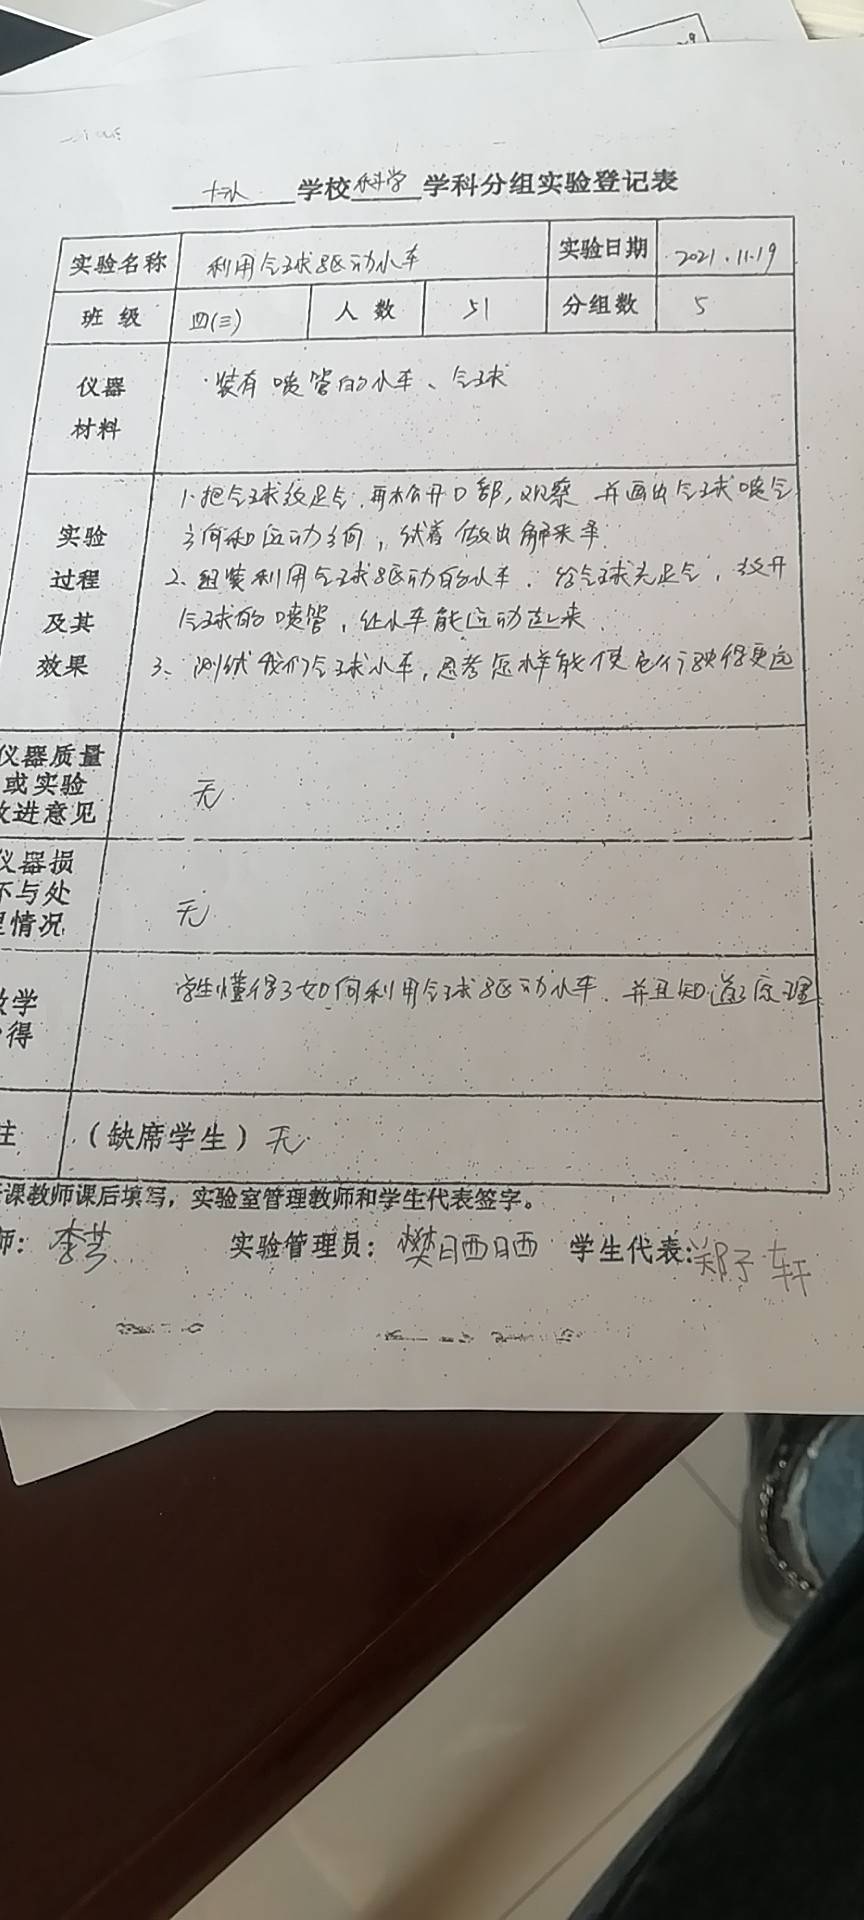 学校科学学科分组实验登记表
实验名称 利用气球驱动小车 实验日期 2021.11.19
班级 四(三) 人数 51 分组数 5
仪器
材料
装有喷管的小车、气球
实验
过程
及其
效果
1.把气球放足气,再松开口部,观察并画出气球喷气
方向和运动方向,试着做出解释
2、组装利用气球驱动的小车.给气球充足气,放开
气球的喷管,让小车能运动起来.
3、测试我们气球小车,思考怎样能使它行驶得更远
仪器质量
或实验
改进意见
无.
仪器损
坏与处
理情况
无
教学
心得
学生懂得了如何利用气球驱动小车.并且知道了原理
注 (缺席学生)无.
课教师课后填写,实验室管理教师和学生代表签字。
师: 李芳 实验管理员: 樊晒晒 学生代表:郑子轩